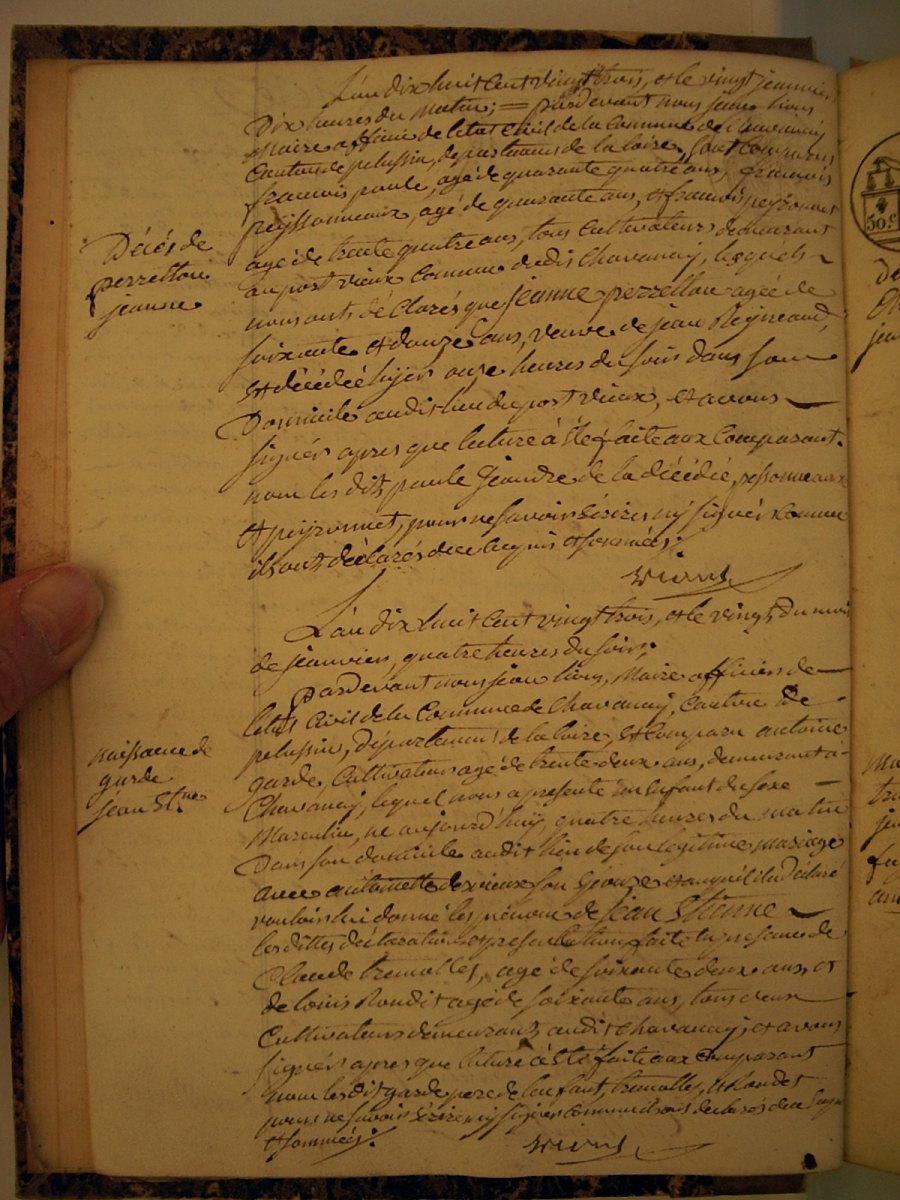 L'an dix huit cent vingt trois, et le vingt janvier
Dix heures du matin; = pardevant nous jean viors
Maire officier de l'etat civil de la Commune de Chavanay,
Canton de pelussin, departement de la loire, sont comparus
francois paule, agé de quarante quatre ans, francois
peyssonneaux, agé de quarante ans, et francois peyronnet
agé de trente quatre ans, tous Cultivateurs demeurant
au port vieux Commune dudis Chavanay, lesquels
nous onts déclarés que jeanne perrellon agée de
soixante et douze ans, veuve de jean Reynaud,
est décédée hyer onze heures du soir dans son
Domicile audit lieu du port vieux, et avons
signés apres que lecture à été faite aux Comparant
non les dits paule Gendre de la décédée, pessonneaux
et peyronnet, pour ne savoir écrire ny signér comme
ils ont déclarés de ce requis et sommés.
viors
Décés de
perrellon
jeanne
L'an dix huit cent vingt trois, et le vingt du mois
de janvier, quatre heures du soir,
Pardevant nous jean viors, Maire officier de
l'etat Civil de la Commune de Chavanay, Canton De
pelussin, Département de la loire, est comparu antoine
garde, Cultivateur agé de trente deux ans, demeurant à
Chavanay, lequel nous a présenté un enfant du sexe
Masculin, né aujourd'huy, quatre heures du matin
Dans son domicile audit lieu de son légitime mariage
avec antoinette son épouse et auquel il a déclaré
vouloir lui donné les prénoms de jean Etienne
les dittes déclaration et présentation faite en presance de
Claude tremollet, agé de soixante deux ans, et
de louis Rondet agé de soixante ans, tous deux
Cultivateurs demeurant audit Chavanay, et avons
signés apres que lecture à été faite aux comparant
non les dit garde pere de l'enfant, tremollet, et Rondet
pour ne savoir écrire ny signer comme ils ont déclarés de ce requis
et sommés.
viors
naissance de
garde
jean Etne
50 c